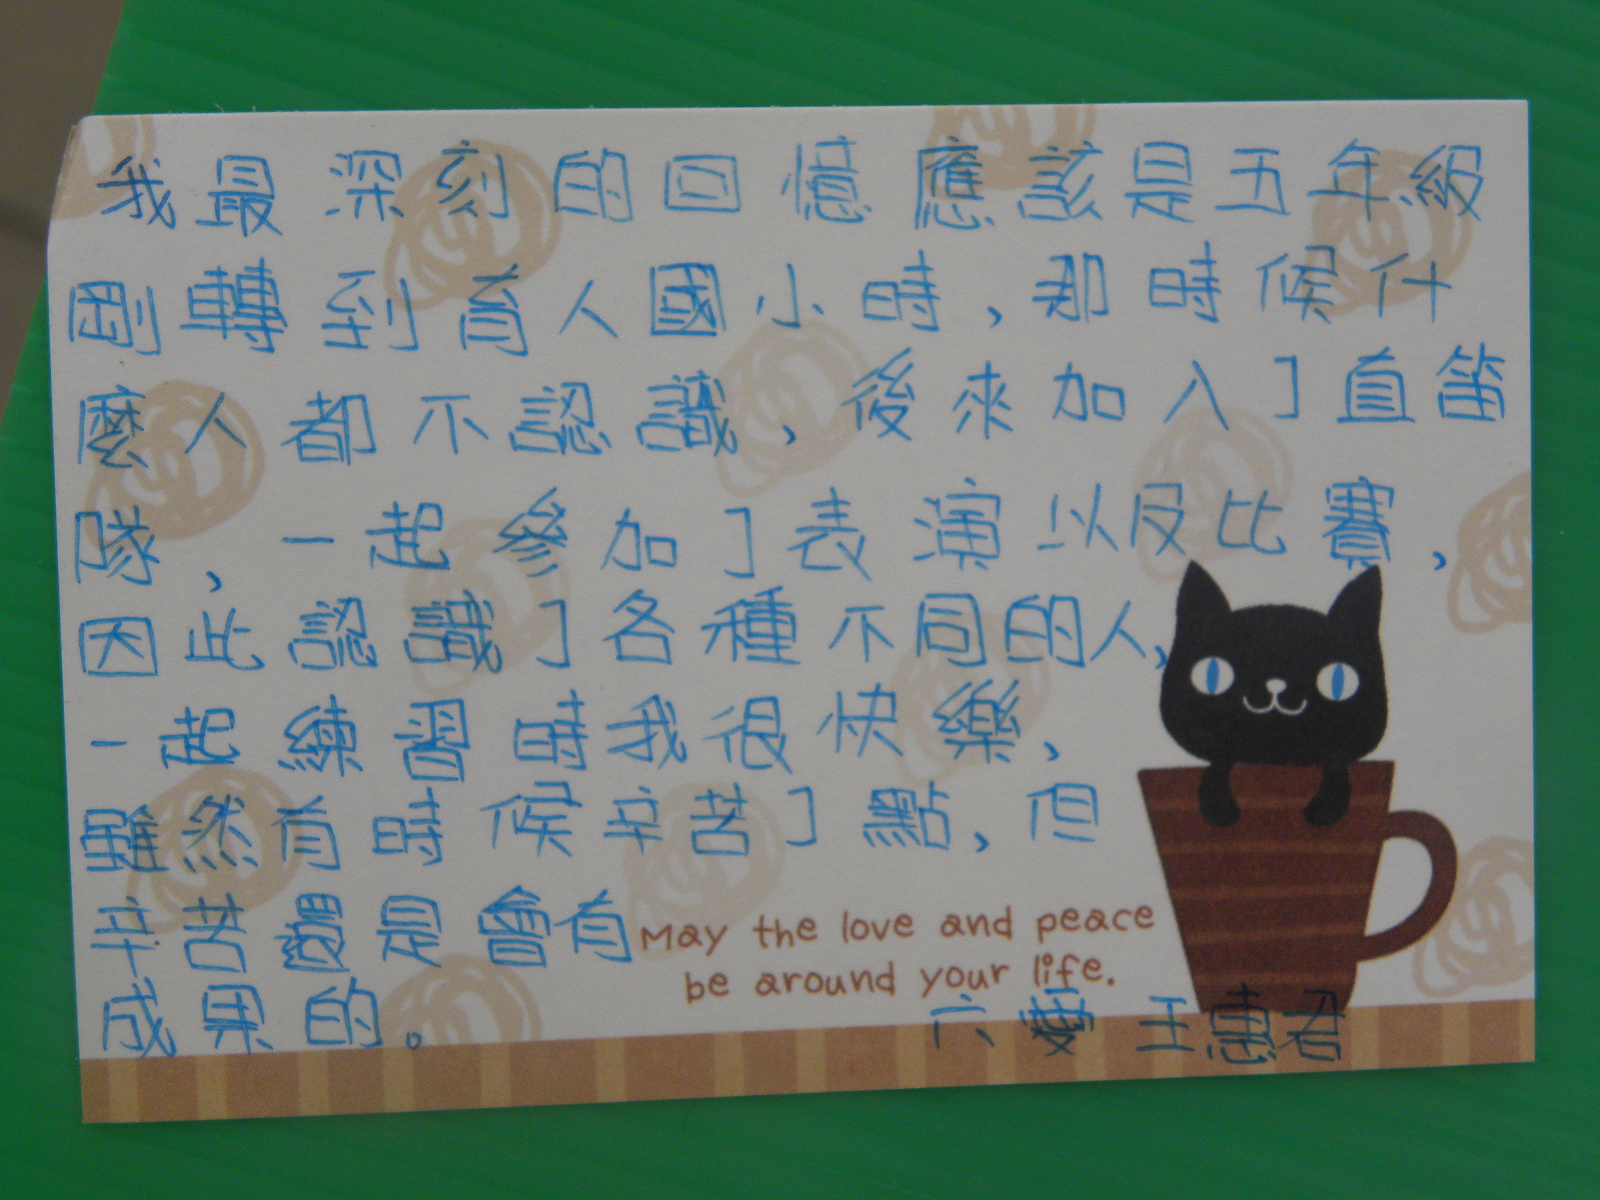 我最深刻的回憶應該是五年級
剛轉到育人國小時,那時候什
麼人都不認識,後來加入了直笛
隊,一起參加了表演以及比賽,
因此認識了各種不同的人,
一起練習時我很快樂,
雖然有時候辛苦了點,但
辛苦還是會有
成果的。
May the love and peace
be around your life.
六愛 王惠君